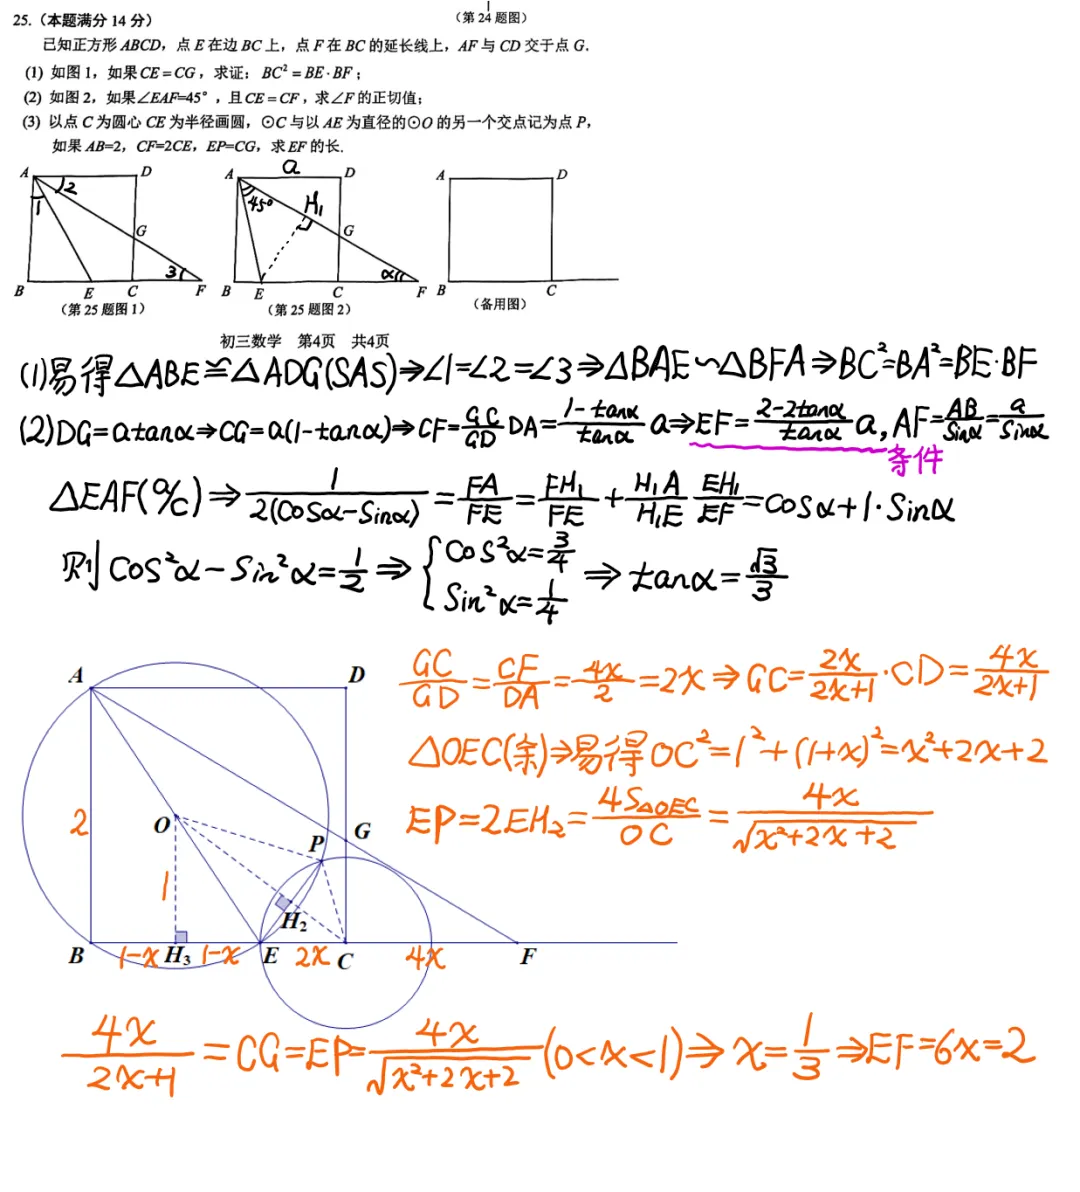 (第24题图)
25.(本题满分 14 分)
已知正方形 ABCD, 点 E 在边 BC 上, 点 F 在 BC 的延长线上, AF 与 CD 交于点 G.
(1) 如图 1, 如果 CE = CG, 求证: BC² = BE · BF;
(2) 如图 2, 如果∠EAF=45°, 且 CE = CF, 求∠F 的正切值;
(3) 以点 C 为圆心 CE 为半径画圆, ⊙C 与以 AE 为直径的⊙O 的另一个交点记为点 P,
如果 AB=2, CF=2CE, EP=CG, 求 EF 的长.
A D 2 1 G 3 B E C F
A a D 45° H₁ G α B E C F
A D B C
(第 25 题图 1)
(第 25 题图 2)
(备用图)
初三数学 第4页 共4页
(1)易得△ABE≌△ADG(SAS)⇒∠1=∠2=∠3⇒△BAE∽△BFA⇒BC²=BA²=BE·BF
(2)DG=atanα⇒CG=a(1-tanα)⇒CF=GC/GD DA=(1-tanα)/tanα a⇒EF=(2-2tanα)/tanα a, AF=AB/Sinα=a/Sinα
条件
△EAF(%)⇒1/2(Cosα-Sinα)=FA/FE=FH₁/FE+H₁A/H₁E EH₁/EF=Cosα+1·Sinα
则 Cos²α-Sin²α=1/2⇒{Cos²α=3/4 Sin²α=1/4⇒tanα=√3/3
GC/GD=CF/DA=4x/2=2x⇒GC=2x/(2x+1)·CD=4x/(2x+1)
△OEC(余)⇒易得OC²=1²+(1+x)²=x²+2x+2
EP=2EH₂=4S△OEC/OC=4x/√(x²+2x+2)
A D
2 O P G
1 H₂
B 1-x H₃ 1-x E 2x C 4x F
4x/(2x+1)=CG=EP=4x/√(x²+2x+2)(0<x<1)⇒x=1/3⇒EF=6x=2